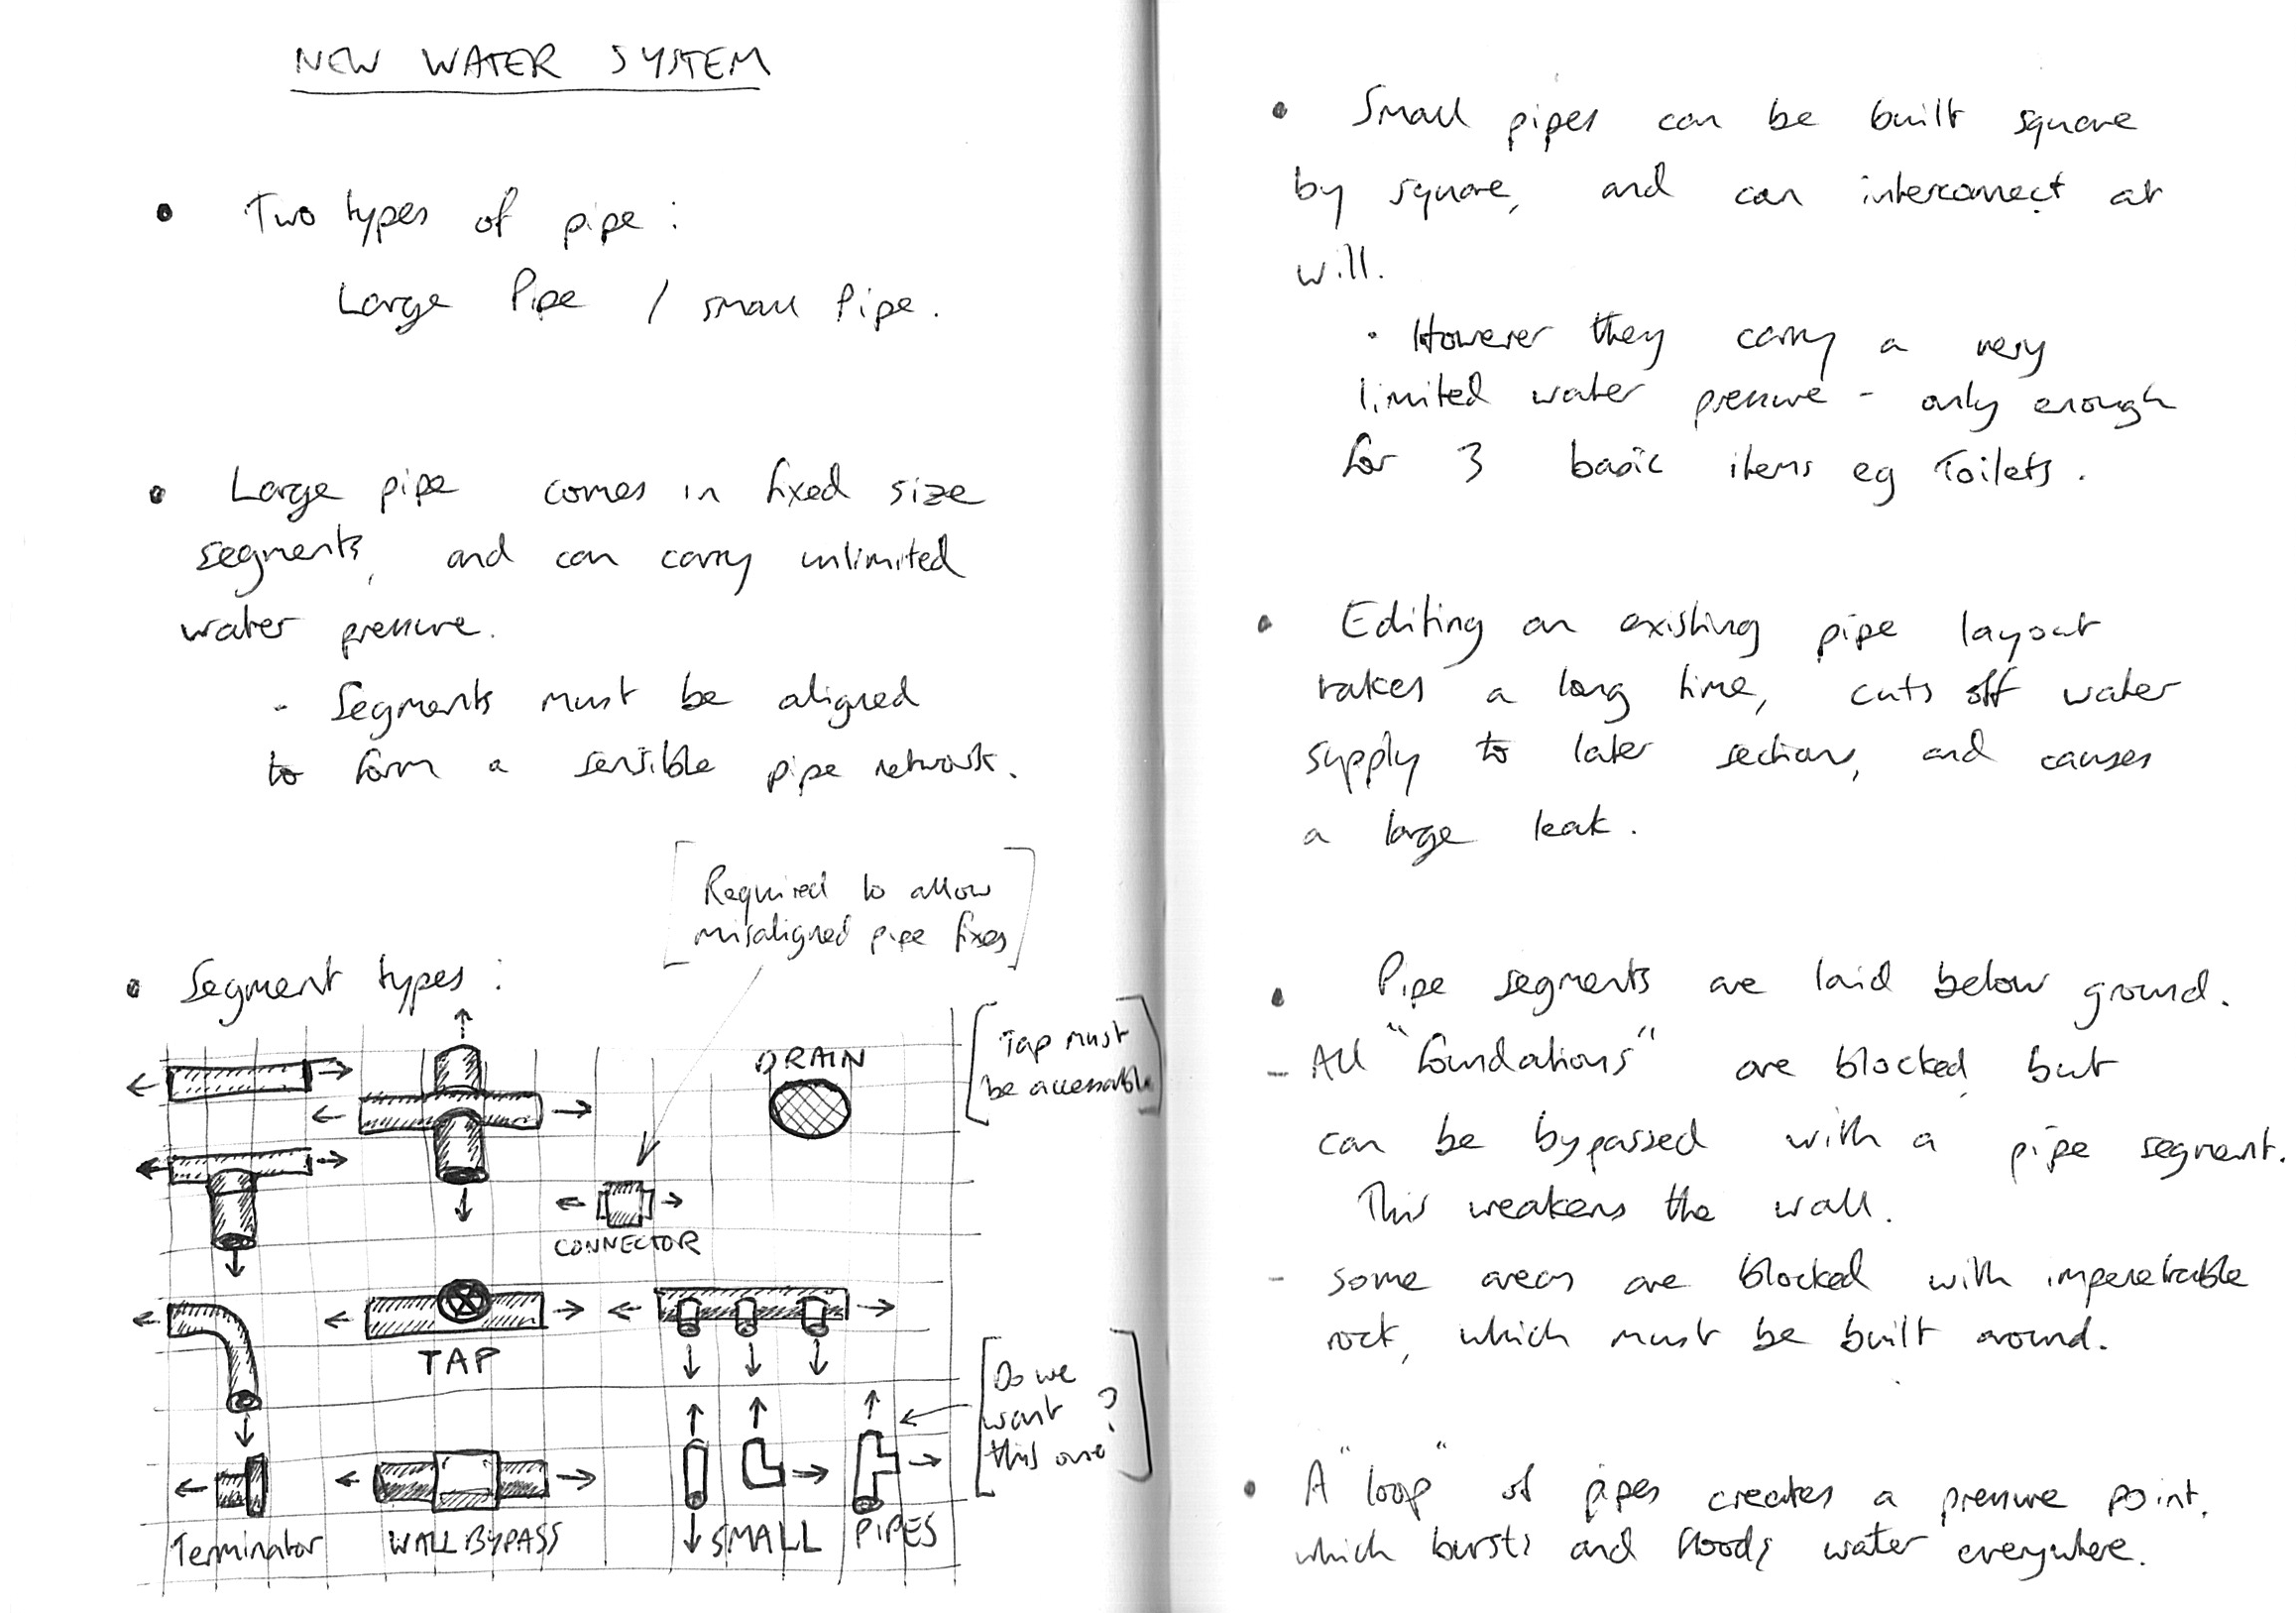 NEW WATER SYSTEM
• Two types of pipe :
Large Pipe / small Pipe.
• Large pipe comes in fixed size
segments, and can carry unlimited
water pressure.
- Segments must be aligned
to form a sensible pipe network.
[Required to allow
misaligned pipe fixes]
• Segment types :
DRAIN
[Tap must
be accessable]
CONNECTOR
TAP
[Do we
want
this one?]
Terminator
WALL BYPASS
SMALL PIPES
• Small pipes can be built square
by square, and can interconnect at
will.
• However they carry a very
limited water pressure - only enough
for 3 basic items eg Toilets.
• Editing an existing pipe layout
takes a long time, cuts off water
supply to later sections, and causes
a large leak.
• Pipe segments are laid below ground.
- All "foundations" are blocked, but
can be bypassed with a pipe segment.
This weakens the wall.
- some areas are blocked with impenetrable
rock, which must be built around.
• A "loop" of pipes creates a pressure point,
which bursts and floods water everywhere.